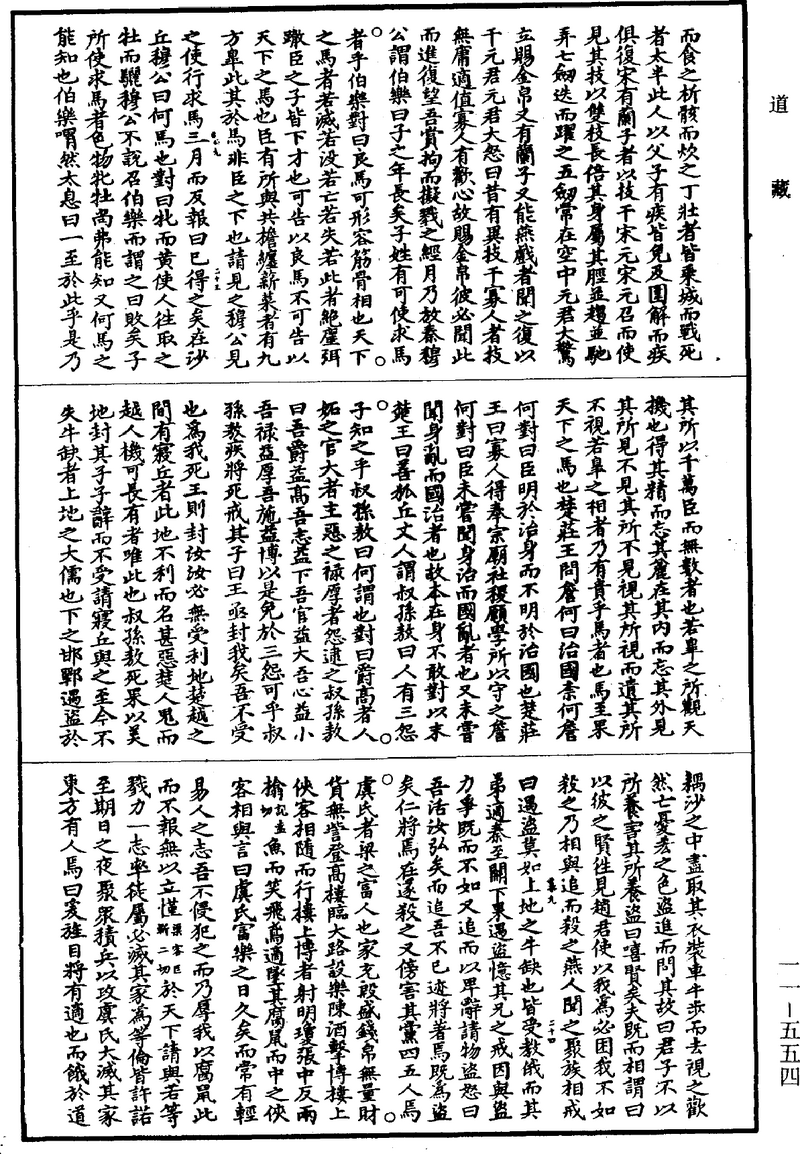 道藏
而食之析骸而炊之丁壯者皆乘城而戰死
者太半此人以父子有疾皆免及圍解而疾
俱復宋有蘭子者以技干宋元宋元召而使
見其技以雙枝長倍其身屬其脛並趨並馳
弄七劒迭而躍之五劒常在空中元君大驚
立賜金帛又有蘭子又能燕戲者聞之復以
干元君元君大怒曰昔有異技干寡人者技
無庸適值寡人有歡心故賜金帛彼必聞此
而進復望吾賞拘而擬戮之經月乃放秦穆
公謂伯樂曰子之年長矣子姓有可使求馬
者乎伯樂對曰良馬可形容筋骨相也天下
之馬者若滅若没若亡若失若此者絶塵弭
臣之子皆下才也可告以良馬不可告以
天下之馬也臣有所與共擔纏薪菜者有九
方臯此其於馬非臣之下也請見之穆公見
之使行求馬三月而反報曰已得之矣在沙
丘穆公曰何馬也對曰牝而黃使人往取之
牡而驪穆公不說召伯樂而謂之曰敗矣子
所使求馬者色物牝牡尚弗能知又何馬之
能知也伯樂喟然太息曰一至於此乎是乃
其所以千萬臣而無數者也若臯之所觀天
機也得其精而忘其麄在其內而忘其外見
其所見不見其所不見視其所視而遺其所
不視若臯之相者乃有貴乎馬者也馬至果
天下之馬也楚莊王問詹何曰治國柰何詹
何對曰臣明於治身而不明於治國也楚莊
王曰寡人得奉宗廟社稷願學所以守之詹
何對曰臣未嘗聞身治而國亂者也又未嘗
聞身亂而國治者也故本在身不敢對以末
楚王曰善狐丘丈人謂叔孫敖曰人有三怨
子知之乎叔孫敖曰何謂也對曰爵高者人
妬之官大者主惡之祿厚者怨逮之叔孫敖
曰吾爵益高吾志益下吾官益大吾心益小
吾祿益厚吾施益博以是免於三怨可乎叔
孫敖疾將死戒其子曰王亟封我矣吾不受
也為我死王則封汝汝必無受利地楚越之
間有寢丘者此地不利而名甚惡楚人鬼而
越人機可長有者唯此也叔孫敖死果以美
地封其子子辭而不受請寢丘與之至今不
失牛缺者上地之大儒也下之邯鄲遇盜於
耦沙之中盡取其衣裝車牛步而去視之歡
然亡憂吝之色盜追而問其故曰君子不以
所養害其所養盜曰嘻賢矣夫既而相謂曰
以彼之賢往見趙君使以我為必困我不如
殺之乃相與追而殺之燕人聞之聚族相戒
曰遇盜莫如上地之牛缺也皆受教俄而其
弟適秦至關下果遇盜憶其兄之戒因與盜
力爭既而不如又追而以卑辭請物盜怒曰
吾活汝弘矣而追吾不已迹將著焉既為盜
矣仁將焉在遂殺之又傍害其黨四五人焉
虞氏者梁之富人也家充殷盛錢帛無量財
貨無訾登高樓臨大路設樂陳酒擊博樓上
俠客相隨而行樓上博者射明瓊張中反兩
魚而笑飛鳶適墜其腐鼠而中之俠
客相與言曰虞氏富樂之日久矣而常有輕
易人之志吾不侵犯之而乃辱我以腐鼠此
而不報無以立慬於天下請與若等
戮力一志率徒屬必滅其家為等倫皆許諾
至期日之夜聚衆積兵以攻虞氏大滅其家
東方有人焉曰爰旌目將有適也而餓於道
一一－五五四